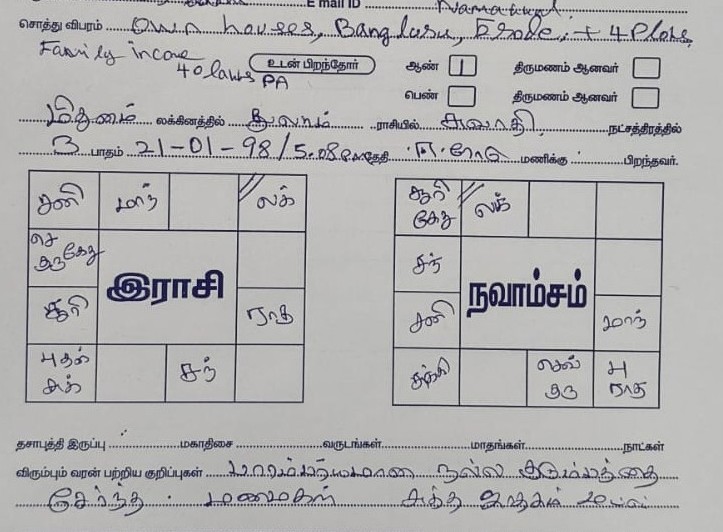 E mail ID Namakkal
சொத்து விபரம் Own houses, Banglusu, Erode, + 4 Plots,
Family income உடன் பிறந்தோர் ஆண் 1 திருமணம் ஆனவர்
40 laws PA
பெண் திருமணம் ஆனவர்
மிதுனம் லக்கினத்தில் துலாம் ராசியில் சுவாதி நட்சத்திரத்தில்
3 பாதம் 21-01-98/5.08 P.m தேதி மணிக்கு பிறந்தவர்.
சனி மாந் லக்
செ குருகேது
இராசி
சூரி ராகு
புதன் சுக் சந்
சூரி கேது லக்
சந்
நவாம்சம்
சனி மாந்
சுக்கி செவ் குரு பு ராகு
தசாபுத்தி இருப்பு மகாதிசை வருடங்கள் மாதங்கள் நாட்கள்
விரும்பும் வரன் பற்றிய குறிப்புகள் பாரம்பரியமான நல்ல குடும்பத்தை
சேர்ந்த மணமகள் சுத்த ஜாதகம்